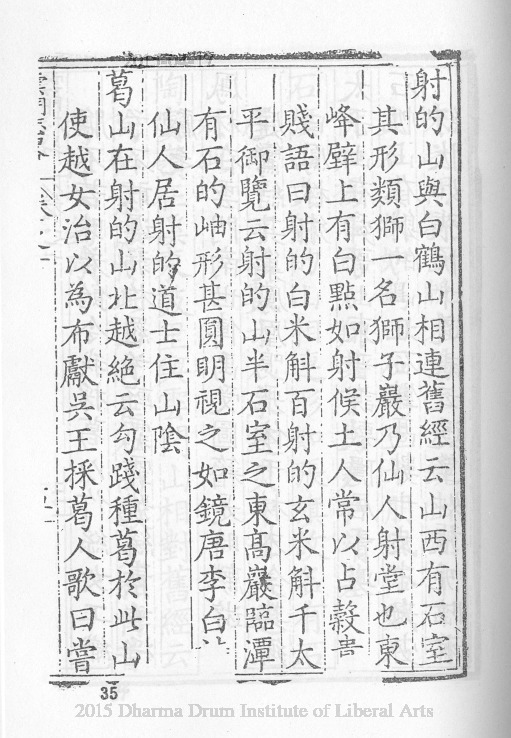 射的山與白鶴山相連舊經云山西有石室
其形類獅一名獅子巖乃仙人射堂也東
峰壁上有白點如射候土人常以占穀貴
賤語曰射的白米斛百射的玄米斛千太
平御覽云射的山半石室之東高巖臨潭
有石的岫形甚圓明視之如鏡唐李白
仙人居射的道士住山陰
葛山在射的山北越絶云勾踐種葛於此山
使越女治以為布獻吳王採葛人歌曰嘗
35
2015 Dharma Drum Institute of Liberal Arts